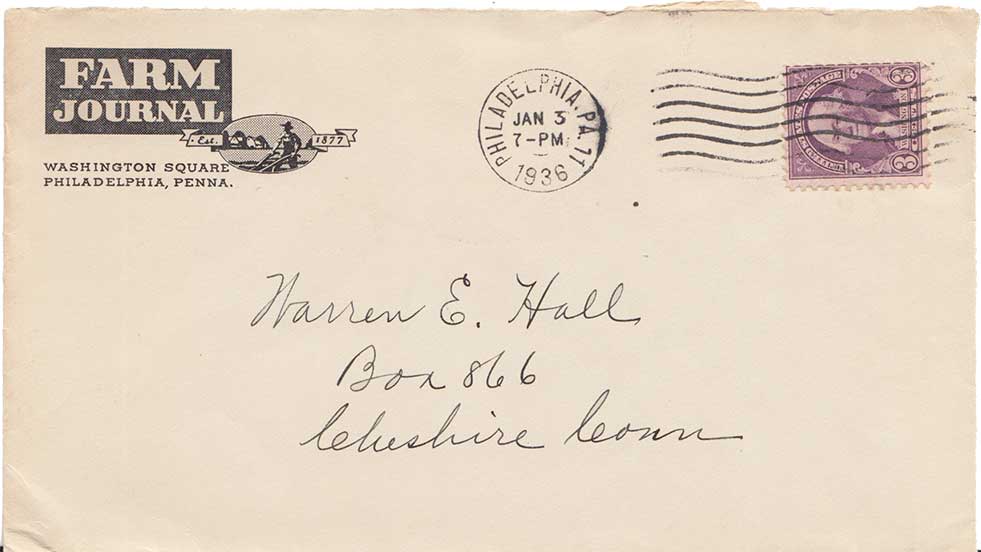 FARM
JOURNAL
Est. 1877
WASHINGTON SQUARE
PHILADELPHIA, PENNA.
PHILADELPHIA, PA. 11
JAN 3
7-PM
1936
3 3
Warren E. Hall
Box 866
Cheshire Conn